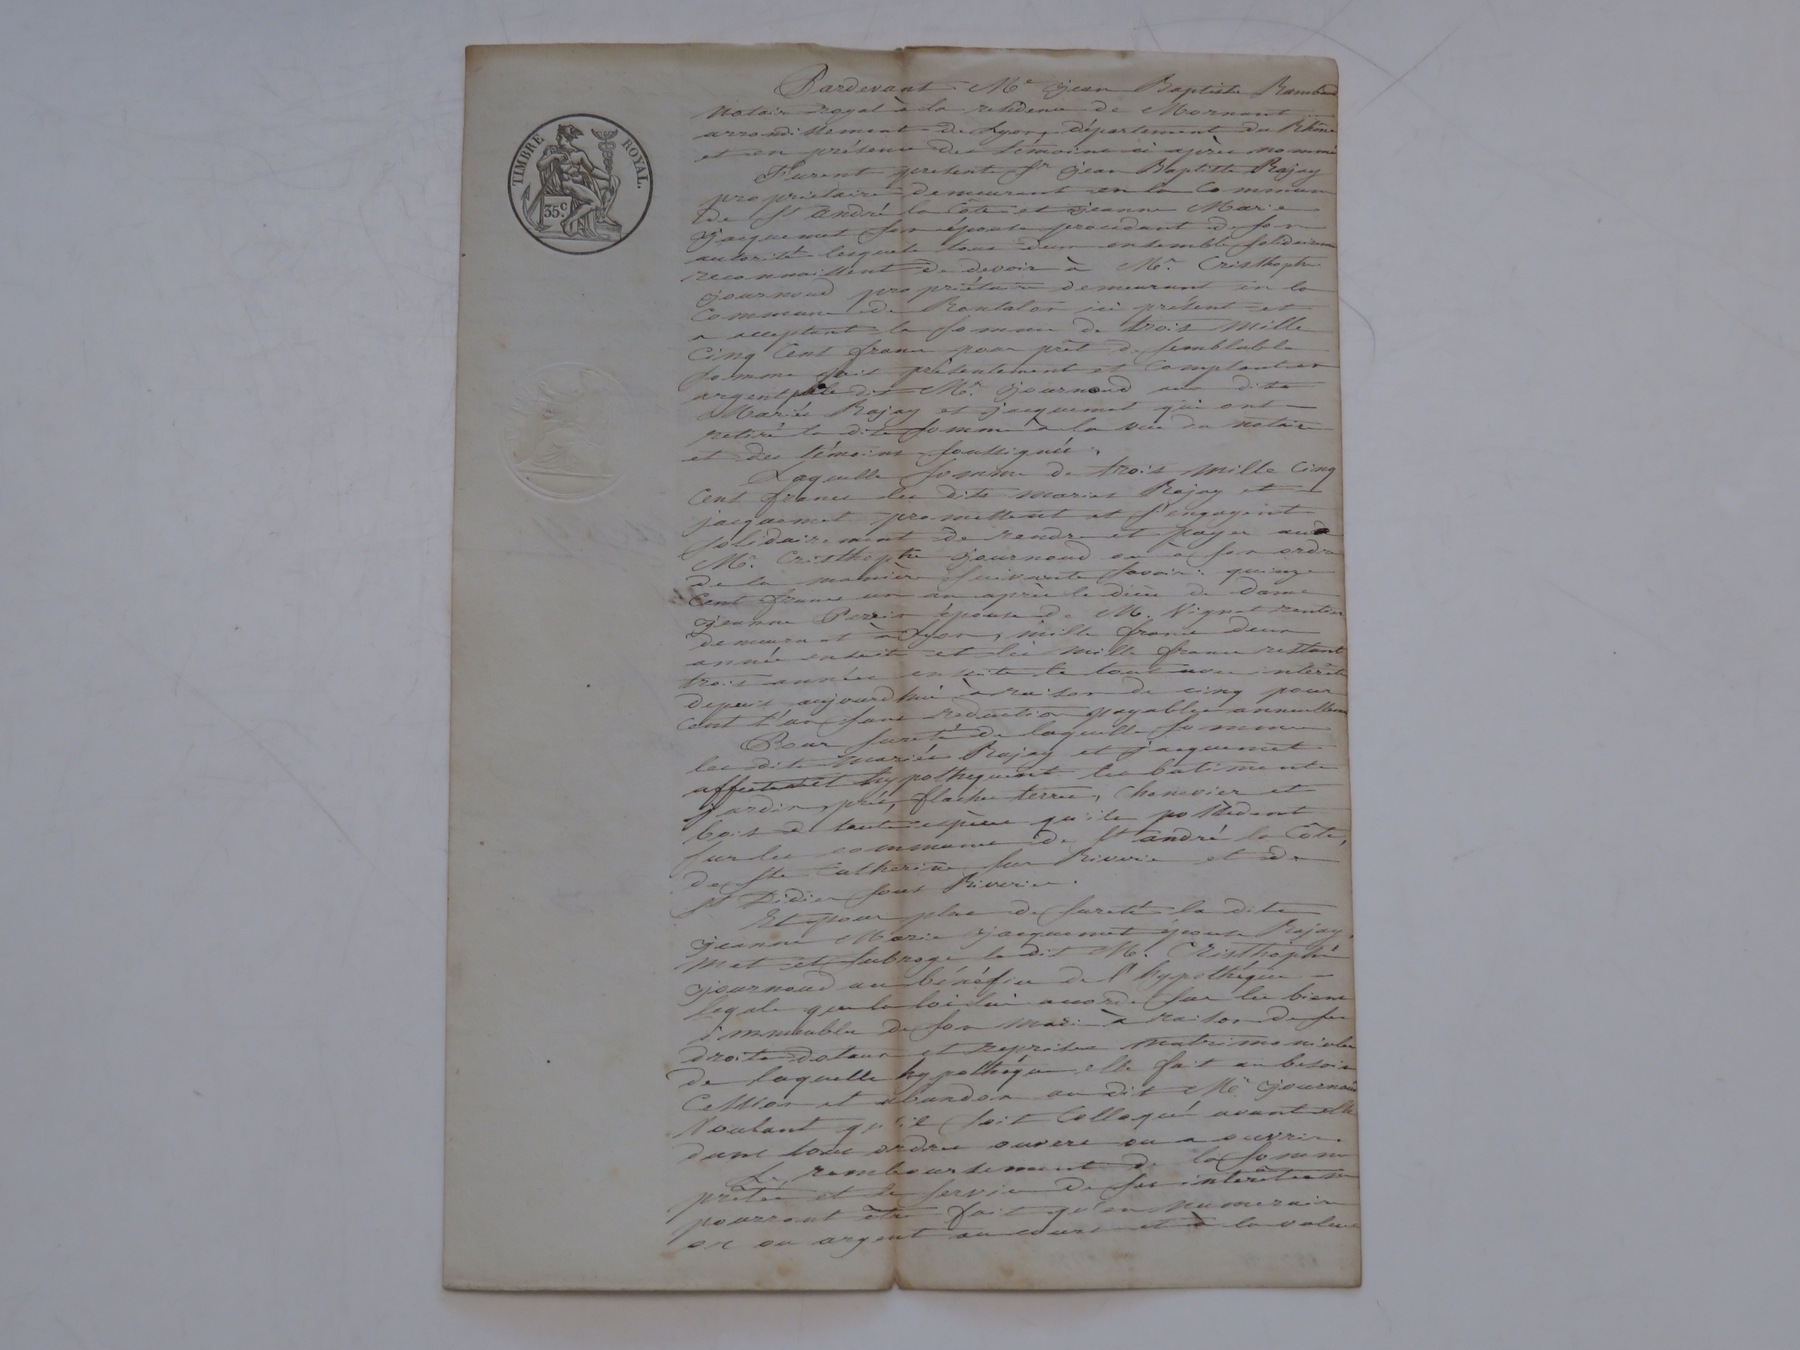 TIMBRE ROYAL.
35 c.
Pardevant Me Jean Baptiste Rambaud
Notaire royal à la residence de Mornant
arrondissement de Lyon, département du Rhône
et en présence des témoins ci après nommé
Furent présents Sr Jean Baptiste Rajay
propriétaire demeurant en la Commune
de St André la Côte et jeanne Marie
Jacquemet son épouse procédant de son
autorité lesquels tous deux ensemble solidairem
reconnaissent de devoir à Mr. Cristhophe
Journoud propriétaire demeurant en la
Commune de Rontalon ici présent et
acceptant la somme de trois mille
Cinq Cent francs pour prêt de semblable
somme fait présentement et Comptant en
argent par le dit Mr. Journoud aux dits
Mariés Rajay et jacquemet qui ont
retiré la dite somme à la vue du notaire
et des témoins soussignés.
Laquelle somme de trois mille Cinq
Cent francs les dits mariés Rajay et
jacquemet promettent et s'engagent
solidairement de rendre et payer au
Mr. Cristhophe Journoud ou à son ordre
de la manière suivante savoir: quinze
Cent francs un an après le décès de dame
Jeanne Perrin épouse de M. Vignat rentier
demeurant à Lyon, mille francs deux
années ensuite et les mille francs restant
trois années ensuite le tout avec intérêts
depuis aujourd'hui à raison de cinq pour
Cent l'an sans réduction payables annuellem
Pour sureté de laquelle somme
les dits mariés Rajay et jacquemet
affectent et hypothèquent les batiments
jardin, prés, flaches terres, Chenevier et
bois de toute espèce qu'ils possèdent
sur les communes de St André la Côte,
de Ste Catherine sur Riverie et de
St Didier sous Riverie.
Et pour plus de sureté la dite
Jeanne Marie jacquemet épouse Rajay,
met et subroge le dit M. Cristhophe
Journoud au bénéfice de l'hypothèque
legale que la loi lui accorde sur les biens
immeubles de son mari à raison de ses
droits dotaux et reprises matrimoniales
de laquelle hypothèque elle fait au besoin
Cession et abandon au dit Mr. Journoud
Voulant qu'il soit Colloqué avant elle
dans tous ordres ouvert ou a ouvrir.
Le remboursement de la somme
prêtée et le service de ses intérêts ne
pourront être fait qu'en Numeraire
or ou argent au cours et à la valeur